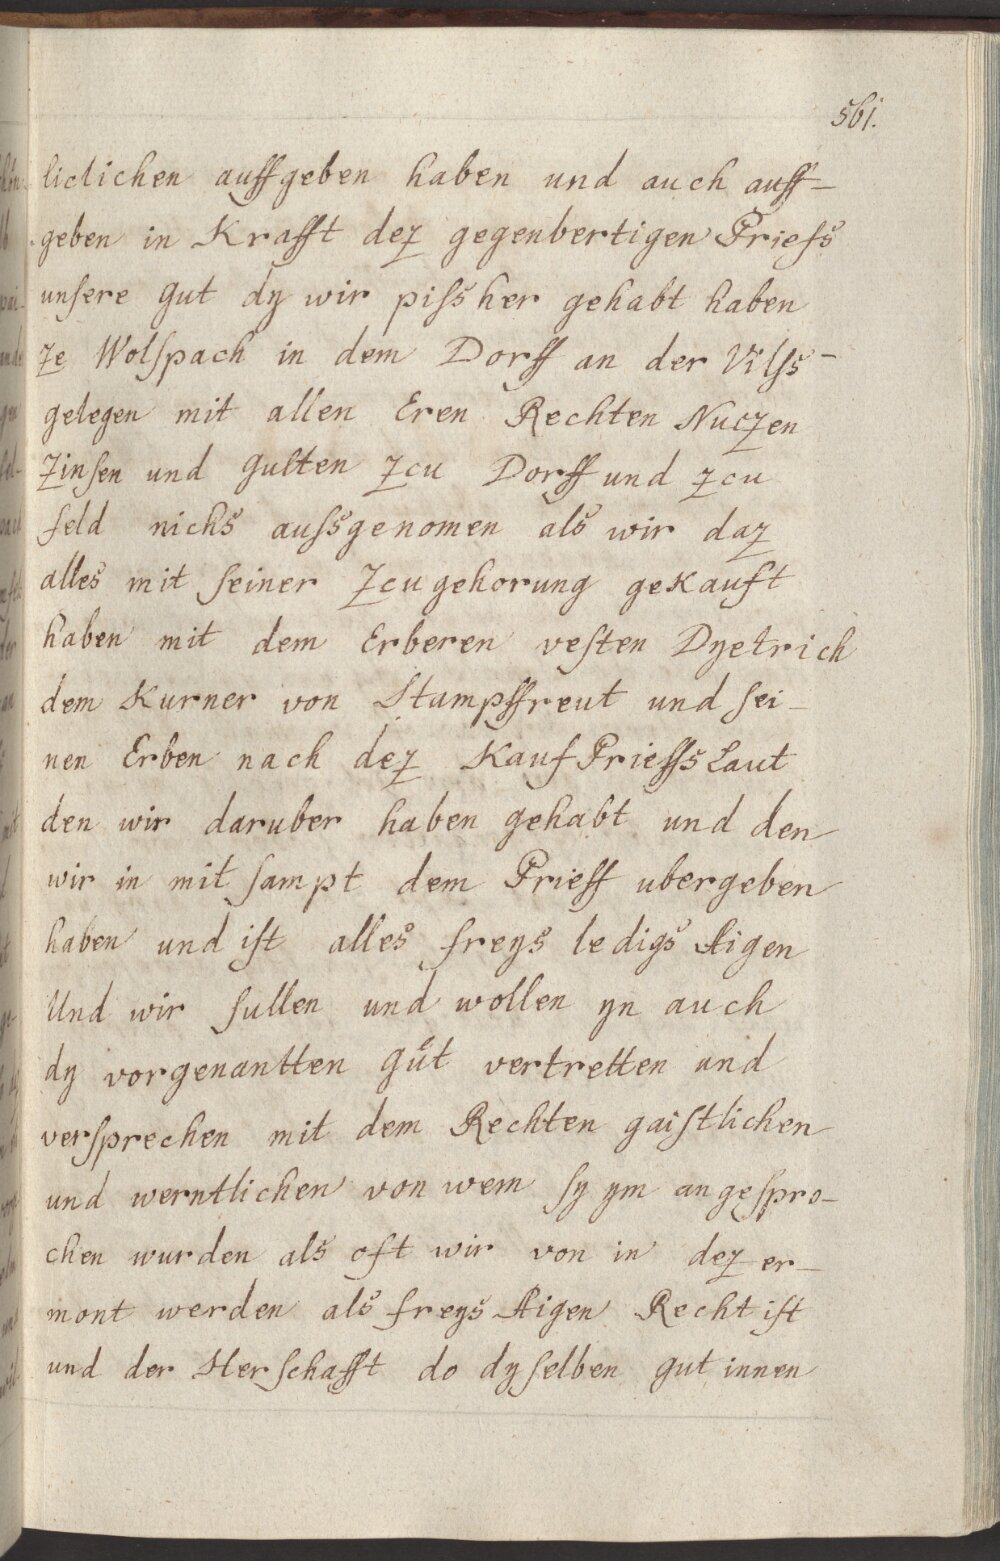 561.
liclichen auffgeben haben und auch auff-
geben in Krafft dez gegenbertigen Priefs
unsere gut dy wir pisher gehabt haben
ze Wolspach in dem Dorff an der Vilss-
gelegen mit allen Eren Rechten Nuczen
Zinsen und gulten zcu Dorff und zcu
feld nichs aussgenomen als wir daz
alles mit seiner Zcugehorung gekauft
haben mit dem Erberen vesten Dyetrich
dem Kurner von Stampffreut und sei-
nen Erben nach dez Kauf Prieffs Laut
den wir daruber haben gehabt und den
wir in mit sampt dem Prieff ubergeben
haben und ist alles freys ledigs Aigen
Und wir sullen und wollen yn auch
dy vorgenantten gůt vertretten und
versprechen mit dem Rechten gaistlichen
und werntlichen von wem sy ym angespro-
chen wurden als oft wir von in dez er-
mont werden als freys Aigen Recht ist
und der Herschafft do dyselben gut innen